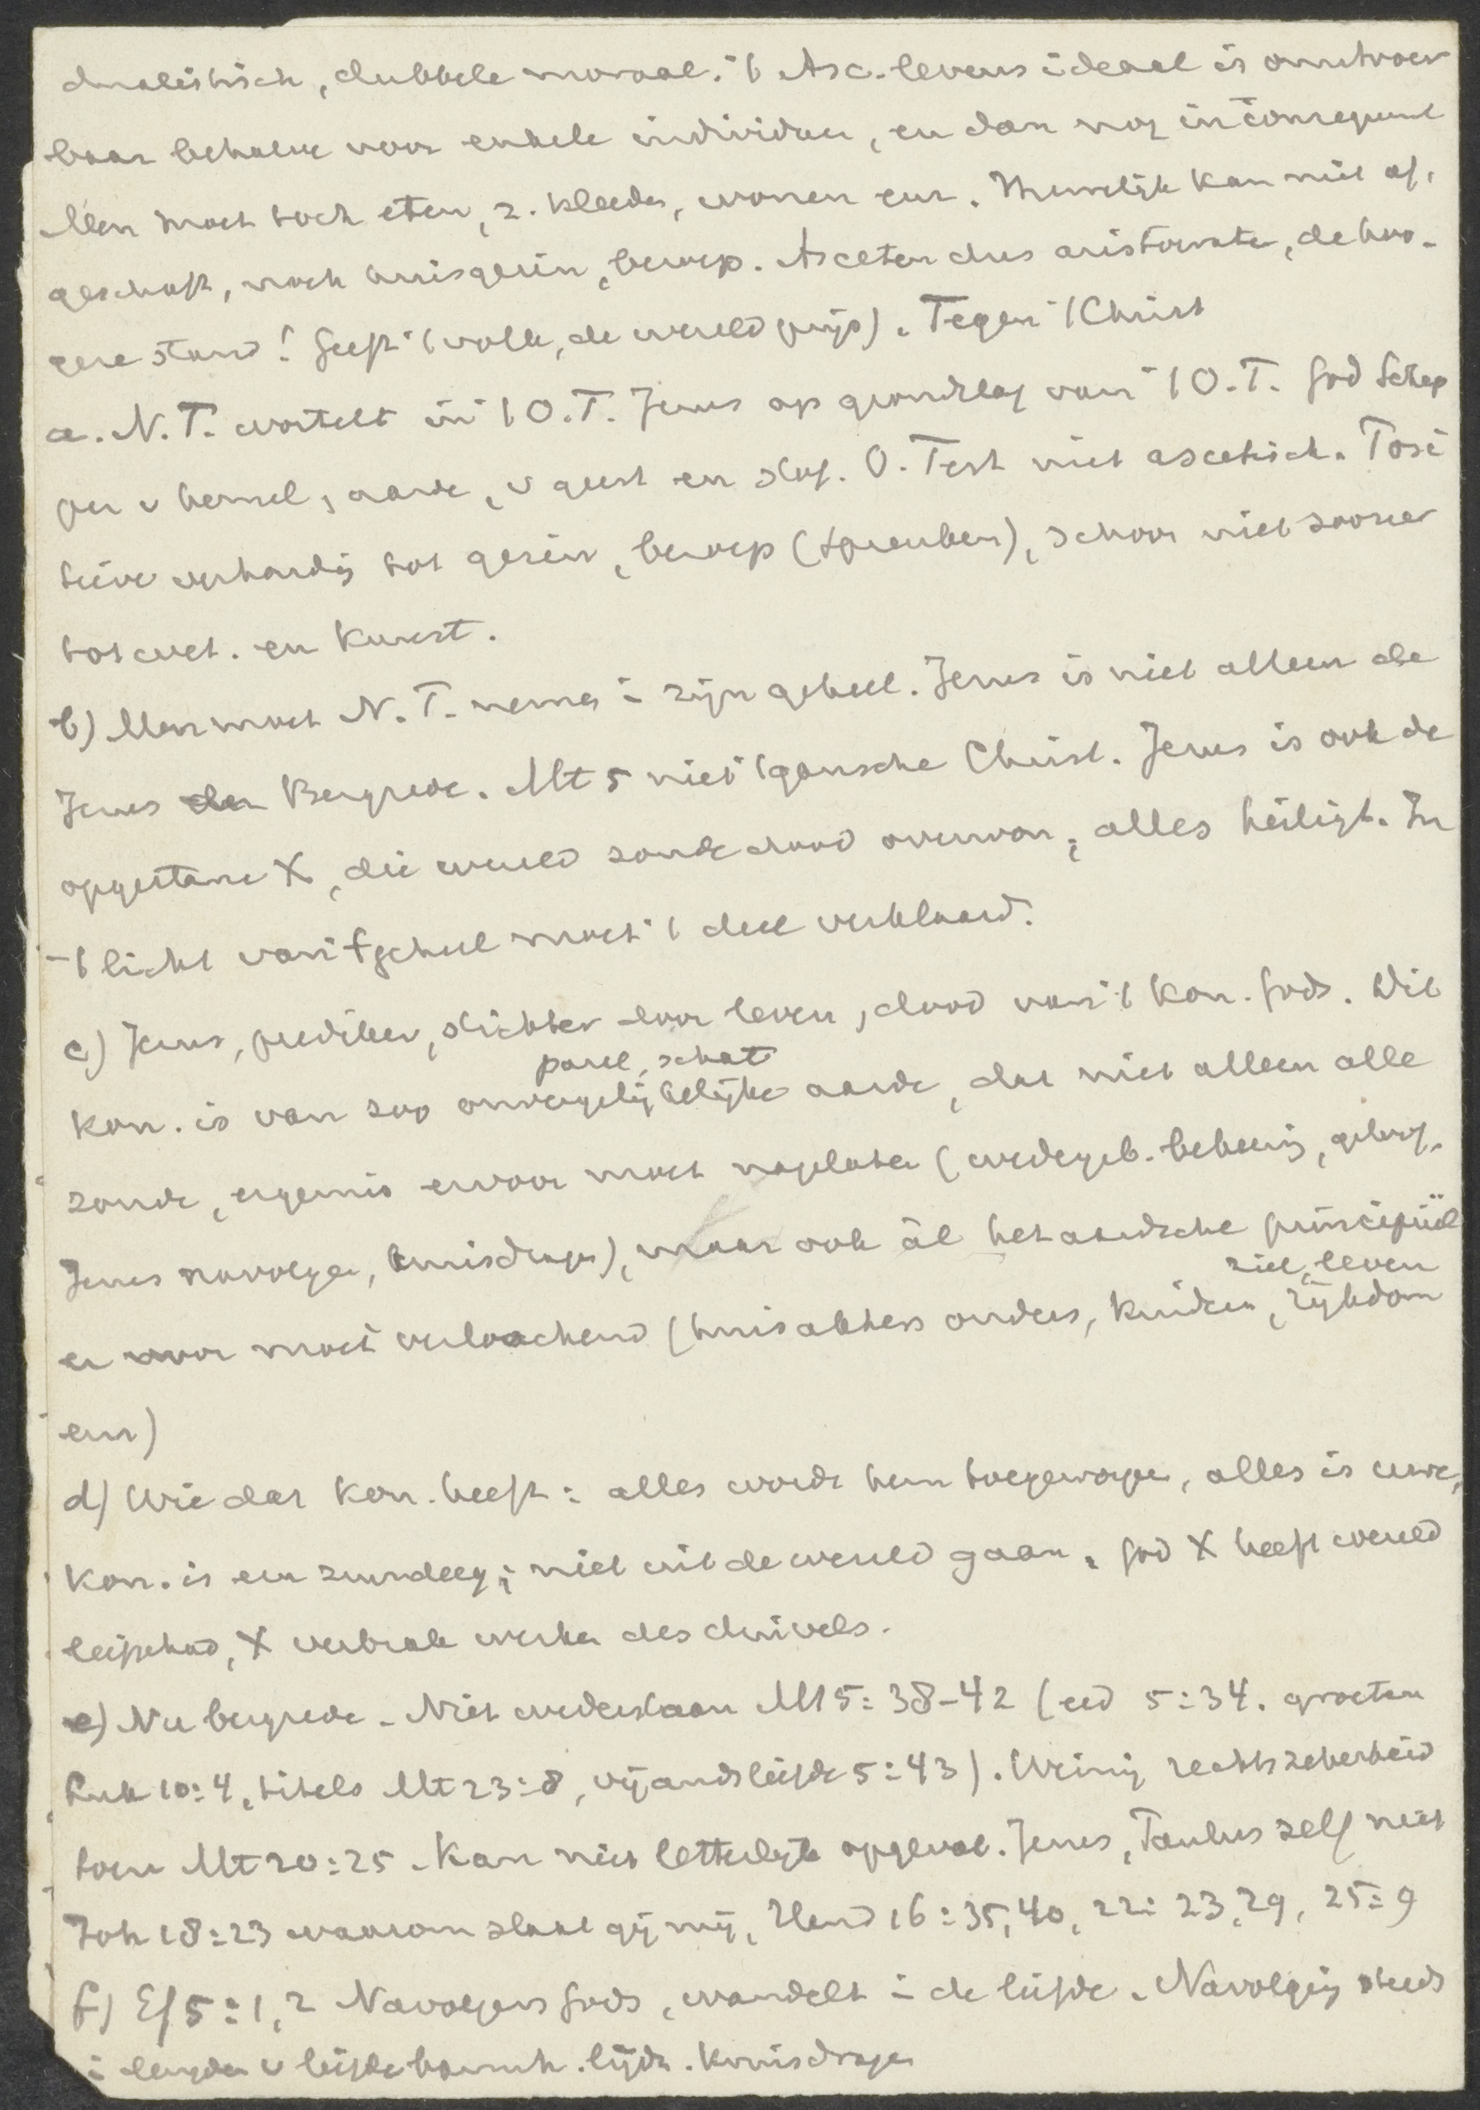 dualistisch, dubbele moraal. 't Asc. levensideaal is onuitvoer
baar behalve voor enkele individuen, en dan nog inconsequent
Men moet toch eten, z. kleeden, wonen enz. Huwelijk kan niet af,
geschaft, noch huisgezin, beroep. Asceten dus aristocraten, de hoo-
gere stand! Geeft 't volk, de wereld prijs). Tegen 't Christ
a. N.T. wortelt in 't O.T. Jezus op grondslag van 't O.T. God Schep
per v hemel, aarde, v geest en stof. O. Test niet ascetisch. Posi
tieve verhandig tot gezin, beroep (spreuken), schoon niet zoozeer
tot wet. en Kunst.
b) Men moet N.T. nemen i zijn geheel. Jezus is niet alleen de
Jezus der Bergrede. Mt 5 niet 't gansche Christ. Jezus is ook de
opgestane X, die wereld zonde dood overwon, alles heiligt. In
't licht van 't geheel moet 't deel verklaard.
c) Jezus, prediker, stichter door leven, dood van 't Kon. Gods. Dit
parel, schat
Kon. is van zoo onvergelijkelijke aarde, dat niet alleen alle
zonde, ergernis ervoor moet nagelaten (wedergeb. bekeering, geloof,
Jezus navolgen, kruisdragen), maar ook al het aardsche principiëel
ziel, leven
er voor moet verloochend (huis akkers ouders, kinderen, rijkdom
enz)
d) Wie dat Kon. heeft: alles wordt hem toegeworpen, alles is uwe,
Kon. is een zuurdeeg; niet uit de wereld gaan. God X heeft wereld
liefgehad, X verbrak werken des duivels.
e) Nu bergrede. Niet wederstaan Mt 5:38-42 (eed 5:34. groeten
Luk 10:4, titels Mt 23:8, vijandsliefde 5:43). Weinig rechtszekerheid
toen Mt 20:25. Kan niet letterlijk opgevat. Jezus, Paulus zelf niet
Joh 18:23 waarom slaat gij mij, Hand 16:35,40, 22:23,29, 25:9
f) Ef 5:1,2 Navolgers Gods, wandelt i de liefde. Navolging steeds
i deugden v liefde barmh. lijden. Kruisdragen